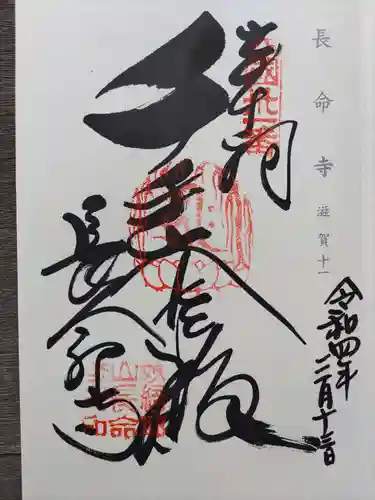 長命寺 滋賀十一
奉拝
西國卅一番
千手大悲殿
長命寺
令和四年
二月十三日